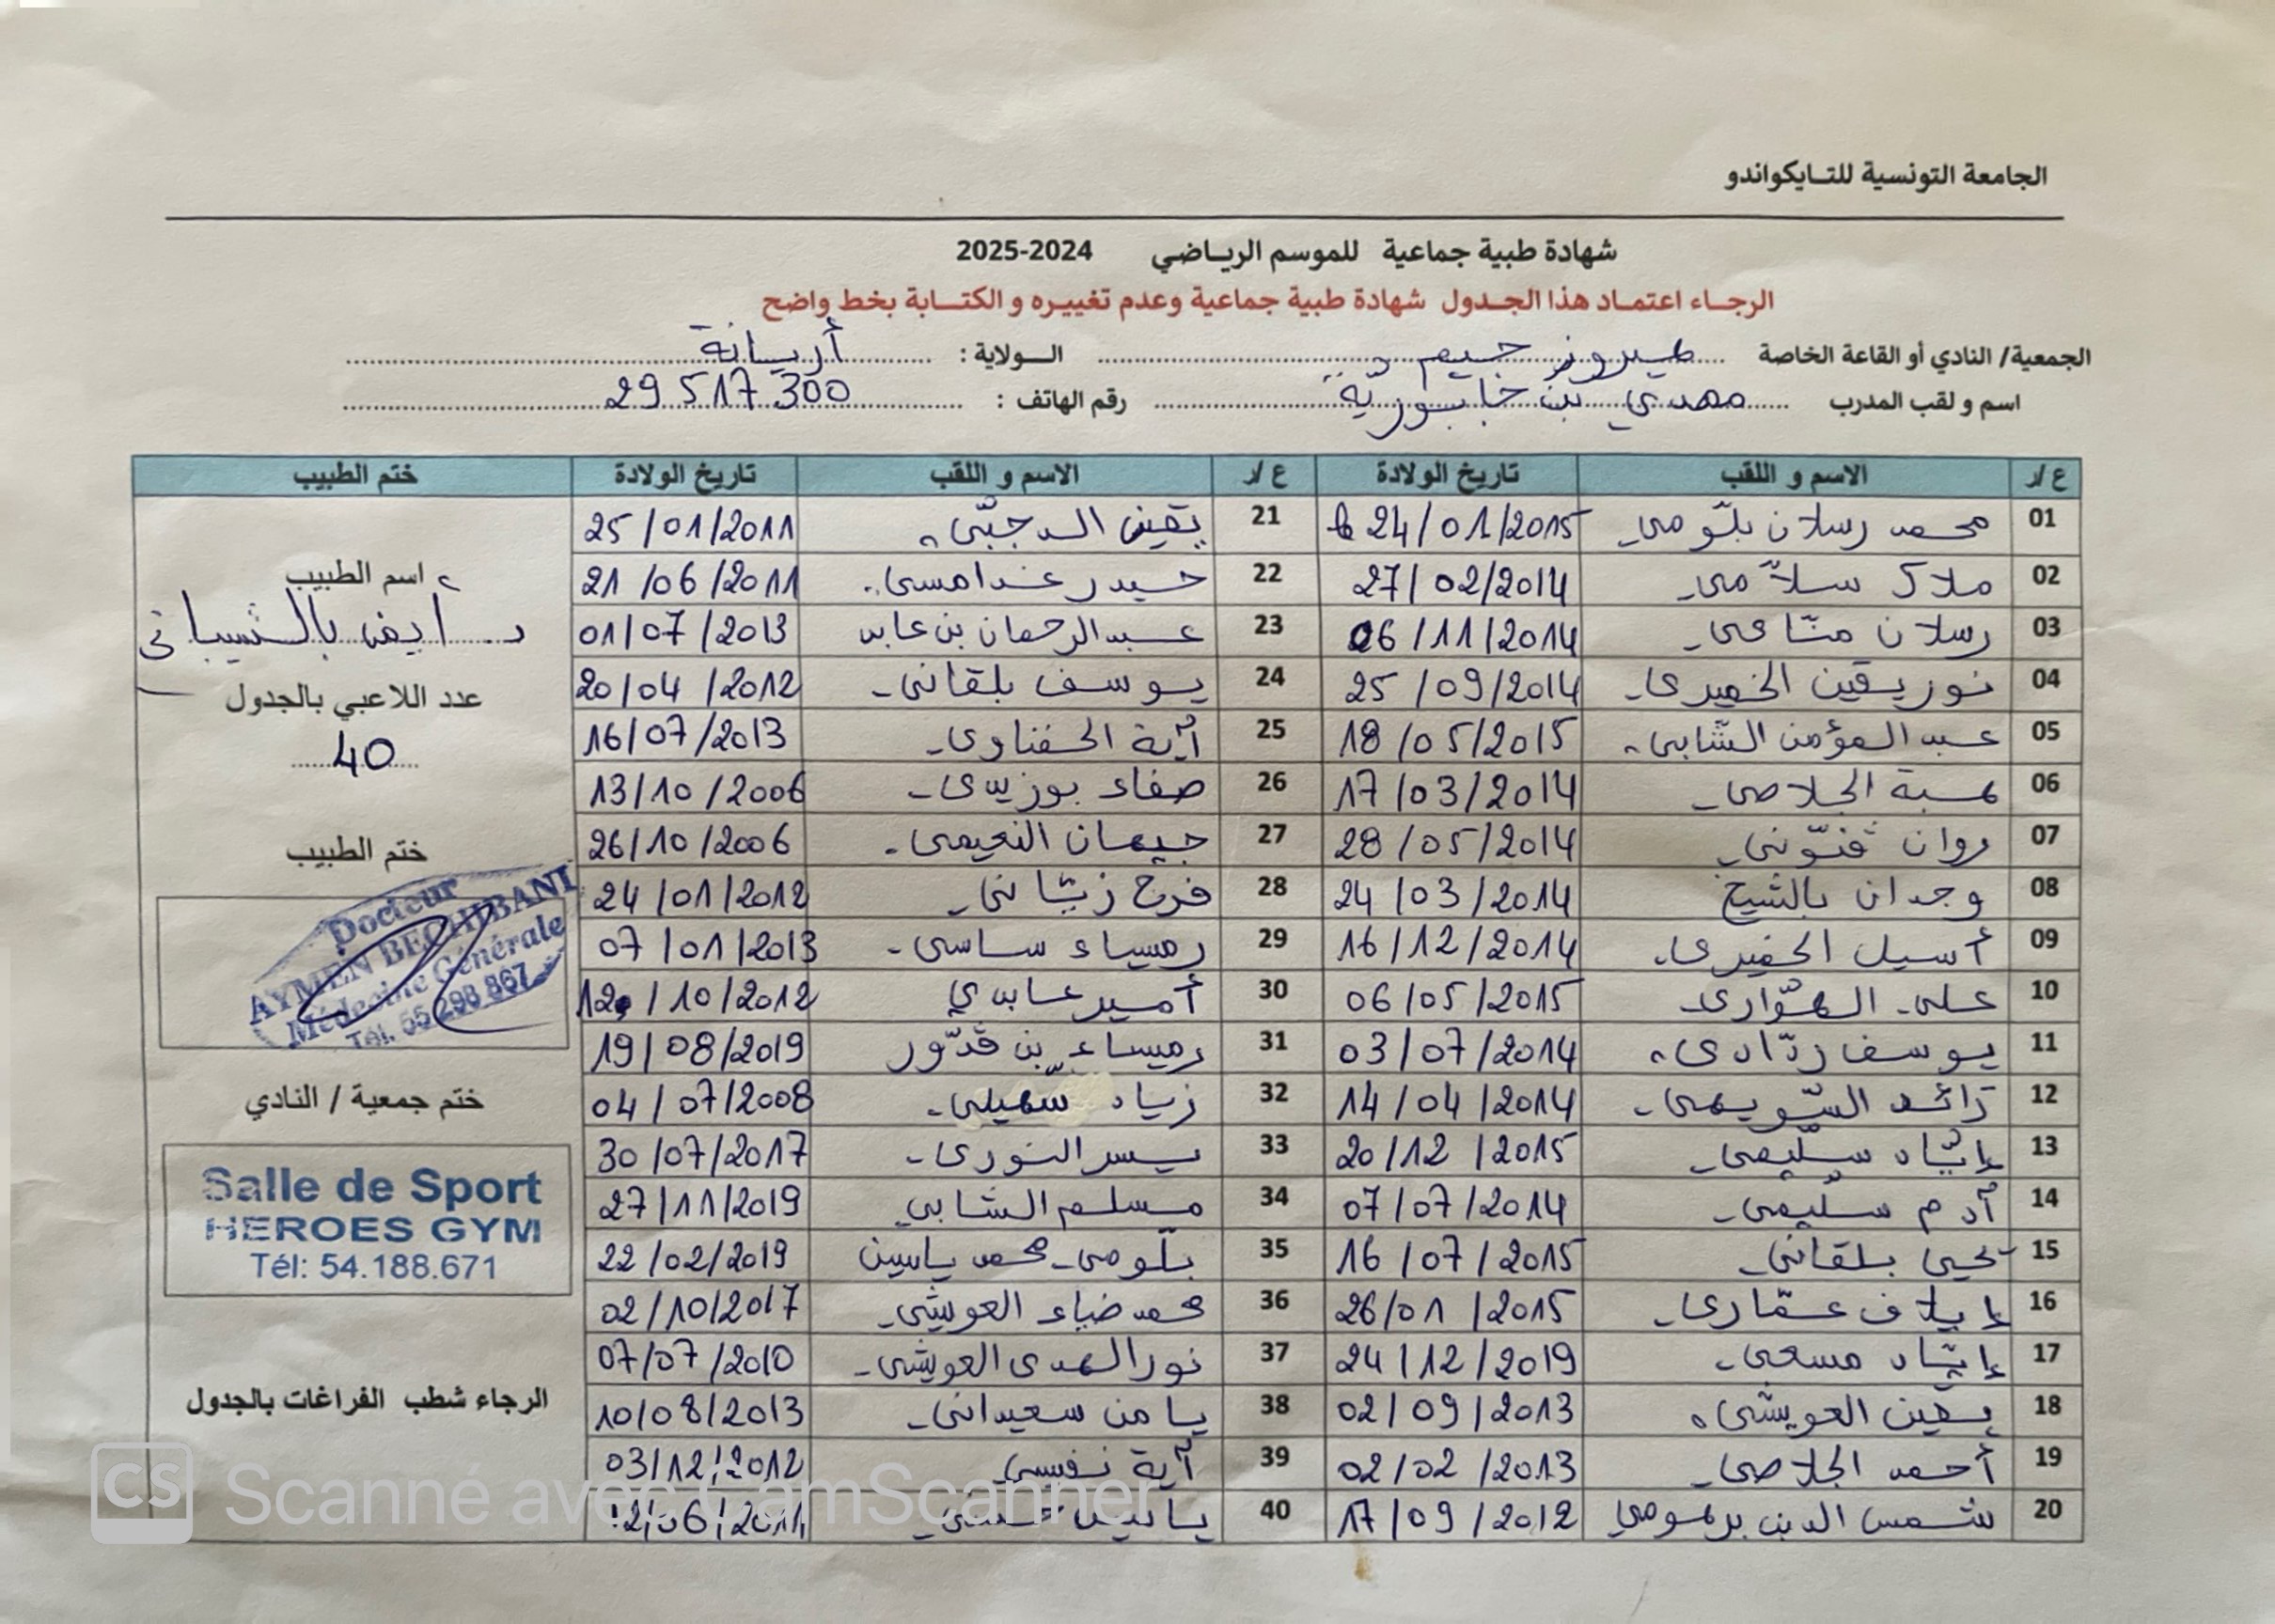 الجامعة التونسية للتـايكواندو
شهادة طبية جماعية للموسم الرياضي 2024-2025
الرجـاء اعتمـاد هذا الجـدول شهادة طبية جماعية وعدم تغييـره و الكتـابة بخط واضح
الجمعية/ النادي أو القاعة الخاصة هيروز جيم الـولاية : أريانة
اسم و لقب المدرب مهدي بن خابورية رقم الهاتف : 29 517 300
ع/ر الاسم و اللقب تاريخ الولادة ع/ر الاسم و اللقب تاريخ الولادة ختم الطبيب
01 محمد رسلان بلّومي 24/01/2015 21 يقين الدجبّي 25/01/2011
02 ملاك سلاّمي 27/02/2014 22 حيدر غدامسي 21/06/2011
03 رسلان منّاعي 06/11/2014 23 عبد الرحمان بن عابد 01/07/2013
04 نور يقين الخميري 25/09/2014 24 يوسف بلقاني 20/04/2012
05 عبد المؤمن الشّابي 18/05/2015 25 آية الحفناوي 16/07/2013
06 هبة الجلاصي 17/03/2014 26 صفاء بوزيدي 13/10/2006
07 روان فنّوني 28/05/2014 27 جيهان النعيمي 26/10/2006
08 وجدان بالشيخ 24/03/2014 28 فرح زيّاني 24/01/2012
09 أسيل الخميري 16/12/2014 29 رميساء ساسي 07/01/2013
10 علي الهوّاري 06/05/2015 30 أمير عابدي 12/10/2012
11 يوسف ردّادي 03/07/2014 31 رميساء بن قدّور 19/08/2019
12 رائد السّويهي 14/04/2014 32 زياد سهيلي 04/07/2008
13 إيّاد سليمي 20/12/2015 33 يسر النوري 30/07/2017
14 آدم سليمي 07/07/2014 34 مسلم الشابي 27/11/2019
15 يحيى بلقاني 16/07/2015 35 بلّومي محمد ياسين 22/02/2019
16 إيلاف عمّاري 26/01/2015 36 محمد ضياء العويشي 02/10/2017
17 إيّاد مسعي 24/12/2019 37 نور الهدى العويشي 07/07/2010
18 يقين العويشي 02/09/2013 38 يامن سعيداني 10/08/2013
19 أحمد الجلاصي 02/02/2013 39 آية نفيسي 03/12/2012
20 شمس الدين برهومي 17/09/2012 40
اسم الطبيب
د. أيمن بالشيباني
عدد اللاعبي بالجدول
40
ختم الطبيب
Docteur
AYMEN BECHIBANI
Médecine Générale
Tél. 55 298 867
ختم جمعية / النادي
Salle de Sport
HEROES GYM
Tél: 54.188.671
الرجاء شطب الفراغات بالجدول
CS Scanné avec CamScanner